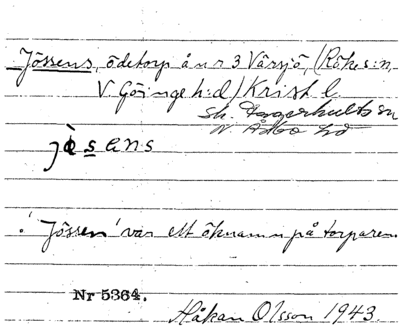 Jössens, ödetorp å nr 3 Vårsjö, (Röke s:n,
V Göinge h:d) Krist. l.
sk. Fagerhults sn
N Åsbo hd
jö̀sens
'Jössen' var ett öknamn på torparen.
Nr 5364.
Håkan Olsson 1943.